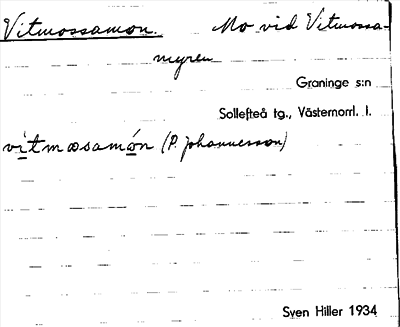 Vitmossamon. Mo vid Vitmossa-
myren
Graninge s:n
Sollefteå tg., Västernorrl. l.
vìtmosamón (P. Johannesson)
Sven Hiller 1934